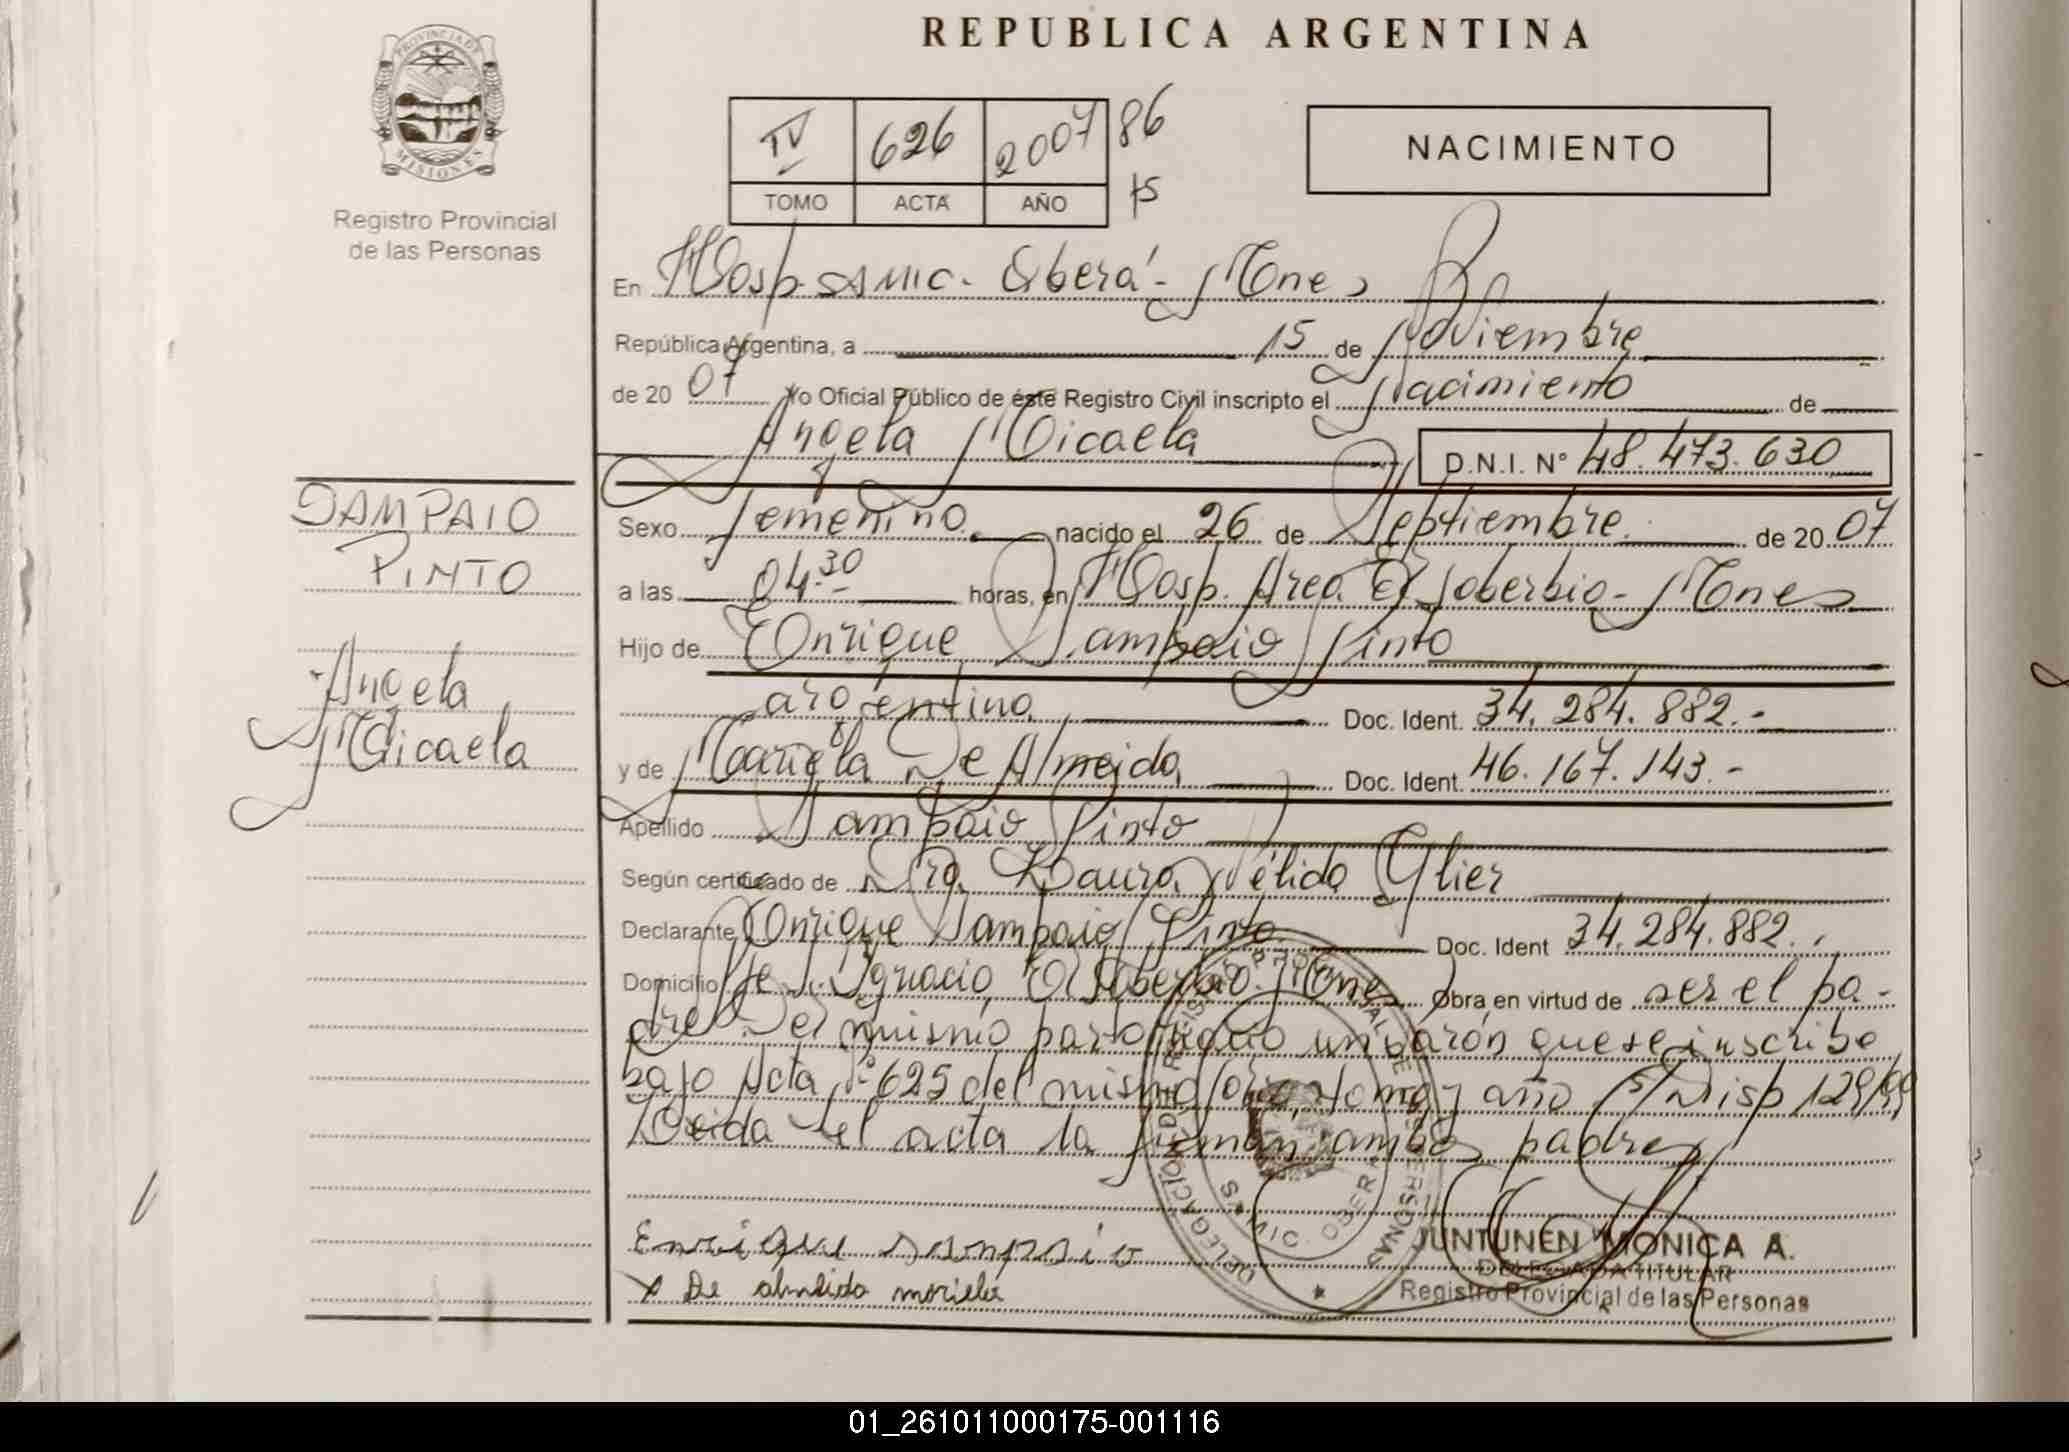 REPUBLICA ARGENTINA
PROVINCIA DE
MISIONES
Registro Provincial
de las Personas
IV 626 2007 86
TOMO ACTA AÑO 15
NACIMIENTO
En Hosp. SAMIC. Oberá - Mnes
República Argentina, a 15 de Noviembre
de 20 07 Yo Oficial Público de éste Registro Civil inscripto el Nacimiento de
Angela Micaela D.N.I. N° 48.473.630
SAMPAIO
PINTO
Angela
Micaela
Sexo femenino nacido el 26 de Septiembre de 20 07
a las 04.30 horas, en Hosp. Area El Soberbio - Mnes
Hijo de Enrique Sampaio Pinto
argentino Doc. Ident. 34.284.882.-
y de Mariela De Almeida Doc. Ident. 46.167.143.-
Apellido Sampaio Pinto
Según certificado de Dra. Laura Nélida Glier
Declarante Enrique Sampaio Pinto Doc. Ident 34.284.882.
Domicilio Ignacio El Soberbio. Mnes Obra en virtud de ser el pa-
dre Del mismo parto nació un barón que se inscribe
bajo Acta N° 625 del mismo tomo y año s/Disp 129/99
Leida el acta la firman ambos padres
Enrique sampaio
x De almeida mariela
DELEGACION DEL REGISTRO PROVINCIAL DE LAS PERSONAS
SAMIC. OBERA
JUNTUNEN MONICA A.
DELEGADA TITULAR
Registro Provincial de las Personas
01_261011000175-001116